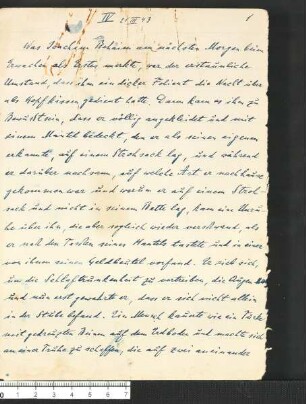 IV 21 III 43 1
Was Joachim Behaim am nächsten Morgen beim
Erwachen als Erstes merkte, war der erstaunliche
Umstand, dass ihm ein dicker Foliant die Nacht über
als Kopfkissen gedient hatte. Dann kam es ihm zu
Bewusstsein, dass er völlig angekleidet und mit
einem Mantel bedeckt, den er als seinen eigenen
erkannte, auf einem Strohsack lag, und während
er darüber nachsann, auf welche Art er nachhause
gekommen war und warum er auf einem Stroh-
sack und nicht in seinem Bette lag, kam eine Unru-
he über ihn, die aber sogleich wieder verschwand, als
er nach den Taschen seines Mantels tastete und in einer
von ihnen seinen Geldbeutel vorfand. Er rieb sich,
um die Schlaftrunkenheit zu vertreiben, die Augen
und nun erst gewahrte er, dass er sich nicht allein
in der Stube befand. Ein Mensch kauerte wie ein Türke
mit gekreuzten Beinen auf dem Erdboden und machte sich
an einer Truhe zu schaffen, die auf zwei aneinander
0 1 2 3 4 5 6 7 8